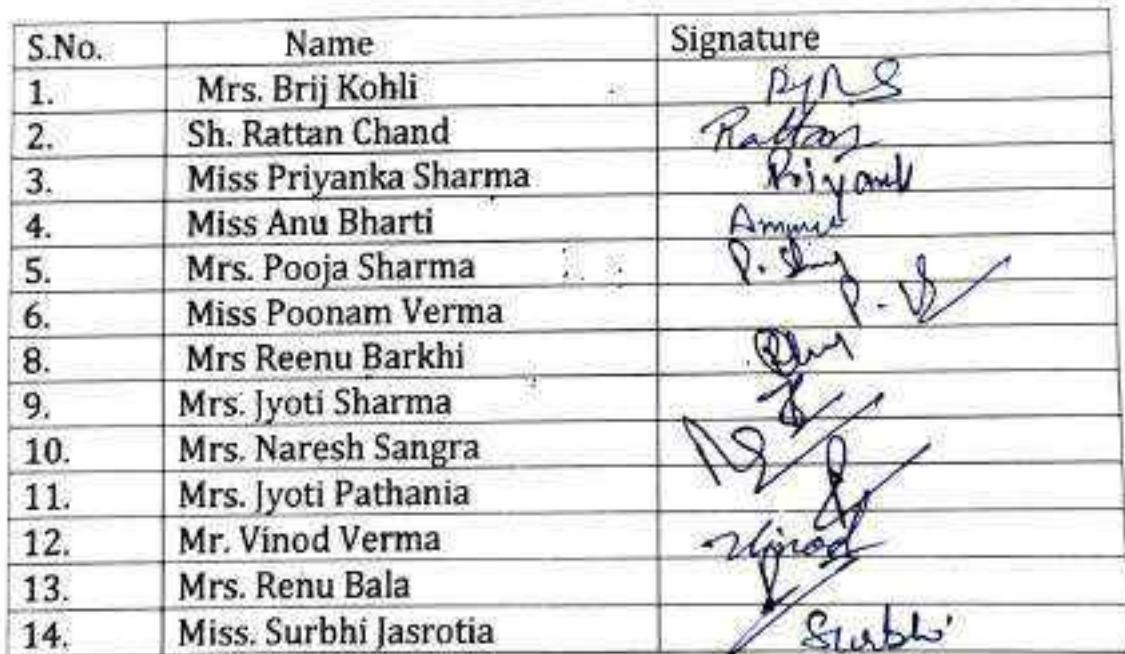 S.No. Name Signature
1. Mrs. Brij Kohli
2. Sh. Rattan Chand Rattan
3. Miss Priyanka Sharma Priyank
4. Miss Anu Bharti
5. Mrs. Pooja Sharma
6. Miss Poonam Verma
8. Mrs Reenu Barkhi
9. Mrs. Jyoti Sharma
10. Mrs. Naresh Sangra
11. Mrs. Jyoti Pathania
12. Mr. Vinod Verma Vinod
13. Mrs. Renu Bala
14. Miss. Surbhi Jasrotia Surbhi